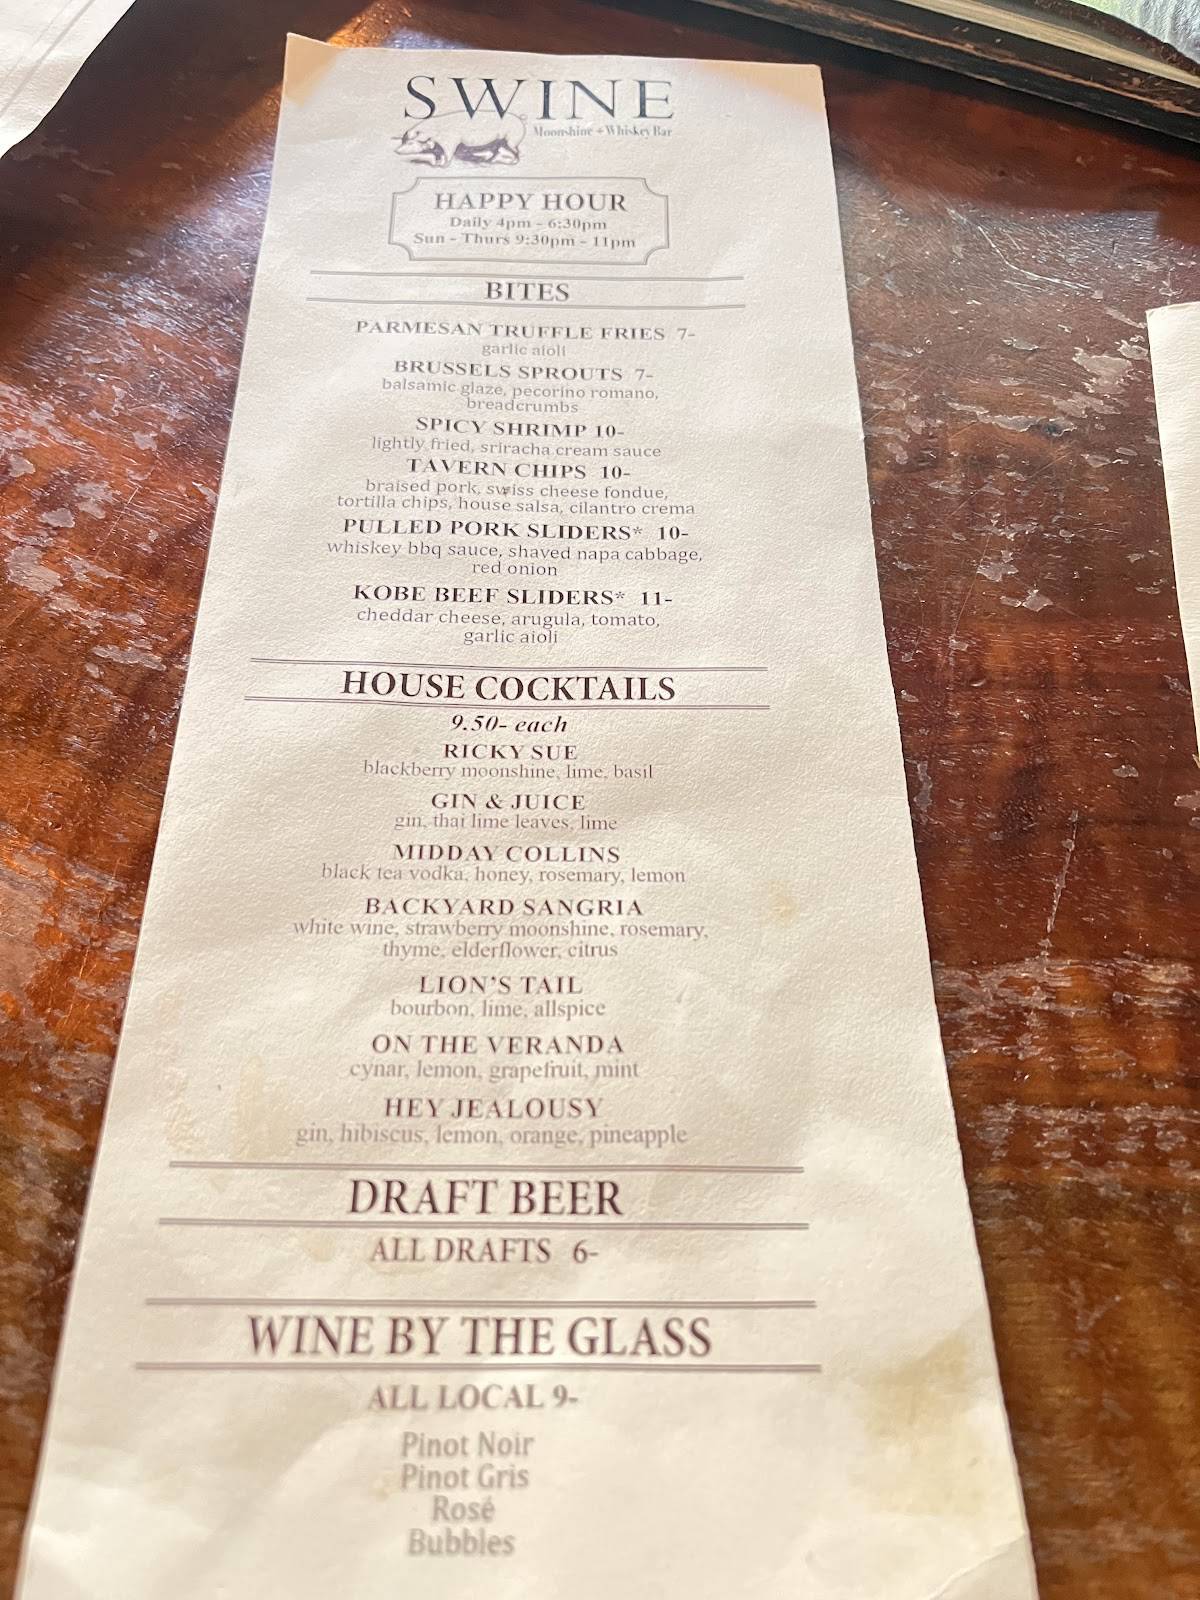 SWINE
Moonshine + Whiskey Bar
HAPPY HOUR
Daily 4pm - 6:30pm
Sun - Thurs 9:30pm - 11pm
BITES
PARMESAN TRUFFLE FRIES 7-
garlic aioli
BRUSSELS SPROUTS 7-
balsamic glaze, pecorino romano,
breadcrumbs
SPICY SHRIMP 10-
lightly fried, sriracha cream sauce
TAVERN CHIPS 10-
braised pork, swiss cheese fondue,
tortilla chips, house salsa, cilantro crema
PULLED PORK SLIDERS* 10-
whiskey bbq sauce, shaved napa cabbage,
red onion
KOBE BEEF SLIDERS* 11-
cheddar cheese, arugula, tomato,
garlic aioli
HOUSE COCKTAILS
9.50- each
RICKY SUE
blackberry moonshine, lime, basil
GIN & JUICE
gin, thai lime leaves, lime
MIDDAY COLLINS
black tea vodka, honey, rosemary, lemon
BACKYARD SANGRIA
white wine, strawberry moonshine, rosemary,
thyme, elderflower, citrus
LION'S TAIL
bourbon, lime, allspice
ON THE VERANDA
cynar, lemon, grapefruit, mint
HEY JEALOUSY
gin, hibiscus, lemon, orange, pineapple
DRAFT BEER
ALL DRAFTS 6-
WINE BY THE GLASS
ALL LOCAL 9-
Pinot Noir
Pinot Gris
Rosé
Bubbles